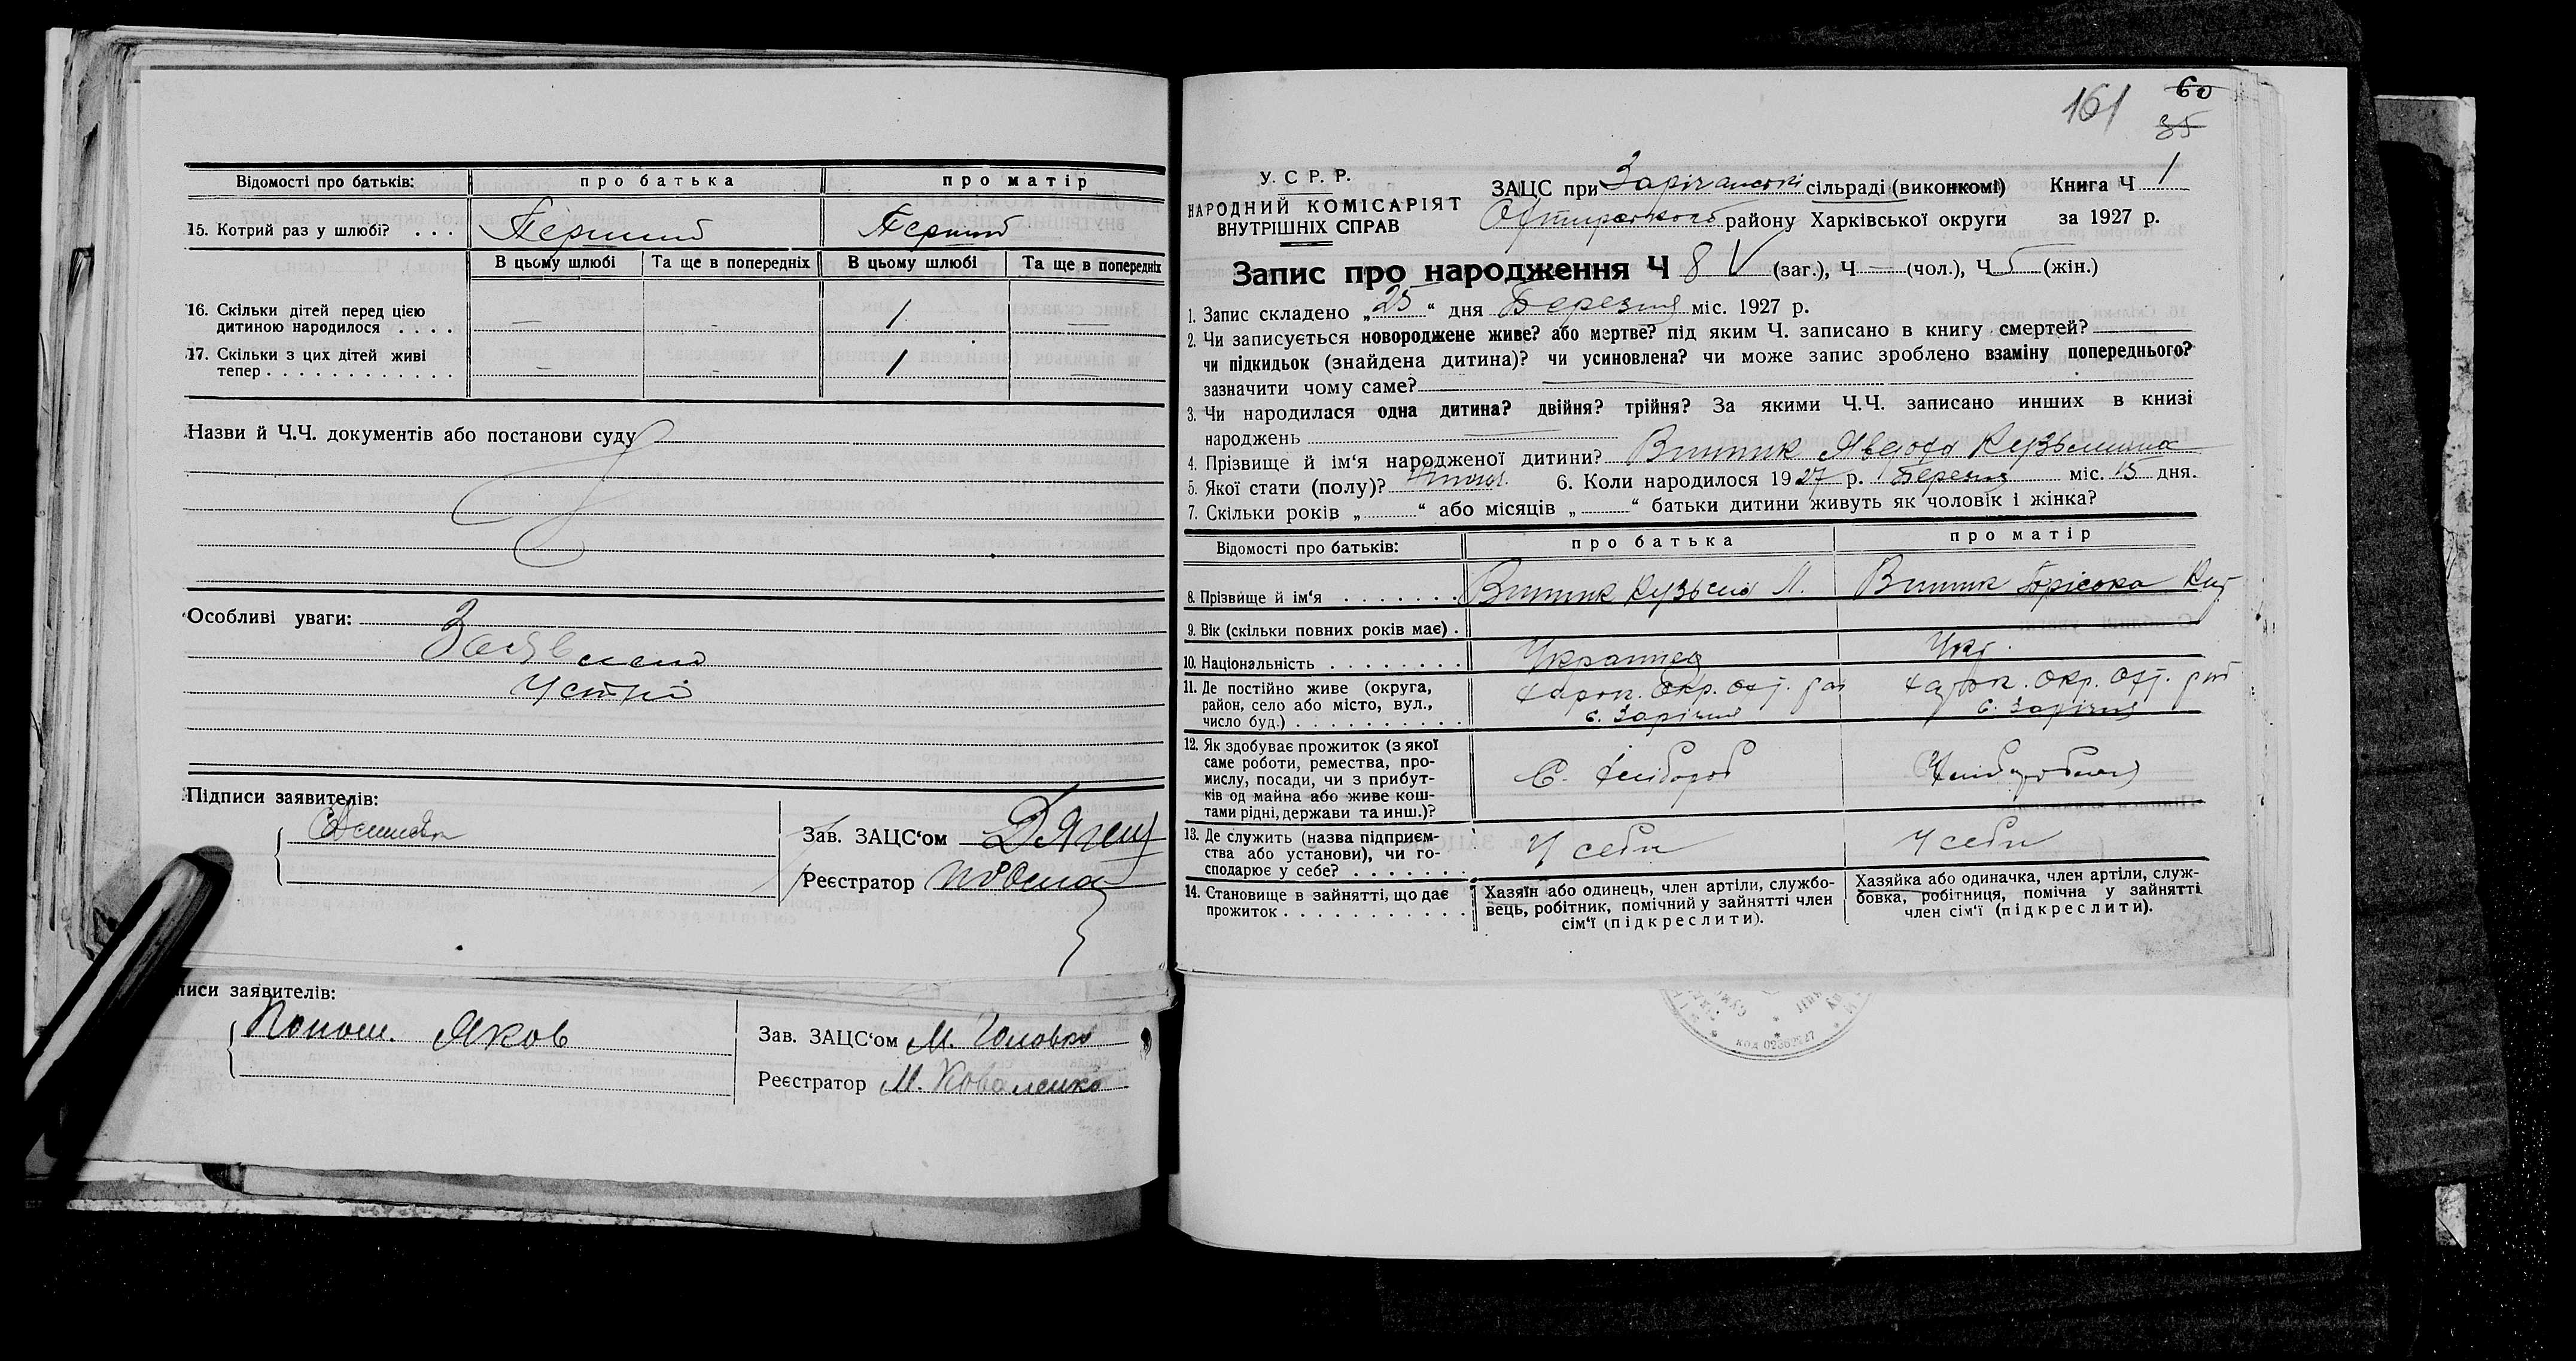 Відомості про батьків: про батька про матір
15. Котрий раз у шлюбі? . . . Перший Перший
В цьому шлюбі Та ще в попередніх В цьому шлюбі Та ще в попередніх
16. Скільки дітей перед цією
дитиною народилося . . . . — - 1 —
17. Скільки з цих дітей живі
тепер . . . . . . . . . . . . — - 1 —
Назви й Ч.Ч. документів або постанови суду
Особливі уваги:
Заявлено
устно
Підписи заявителів:
Зав. ЗАЦС‘ом
Реєстратор
писи заявителів:
Яков
Зав. ЗАЦС‘ом М. Головко
Реєстратор М. Коваленко
161 60
35
У. С Р. Р.
НАРОДНИЙ КОМІСАРІЯТ
ВНУТРІШНІХ СПРАВ
ЗАЦС при Зарічанські сільраді (виконкомі) Книга Ч 1
району Харківської округи за 1927 р.
Запис про народження Ч 8 V (заг.), Ч — (чол.), Ч 5 (жін.)
1. Запис складено „ 25 “ дня Березня міс. 1927 р.
2. Чи записується новороджене живе? або мертве? під яким Ч. записано в книгу смертей?
чи підкидьок (знайдена дитина)? чи усиновлена? чи може запис зроблено взаміну попереднього?
зазначити чому саме?
3. Чи народилася одна дитина? двійня? трійня? За якими Ч.Ч. записано инших в книзі
народжень
4. Прізвище й ім‘я народженої дитини? Винник Явдоха Кузьминична
5. Якої стати (полу)? 6. Коли народилося 19 27 р. Березня міс. 15 дня.
7. Скільки років „ “ або місяців „ “ батьки дитини живуть як чоловік і жінка?
Відомості про батьків: про батька про матір
8. Прізвище й ім‘я . . . . . . . Винник Кузьма Л. Винник
9. Вік (скільки повних років має) .
10. Національність . . . . . . . . Українец Укр.
11. Де постійно живе (округа,
район, село або місто, вул.,
число буд.) . . . . . . . . . . Харк. окр. Охт. рай Харк. окр. Охт. рай
с. Зарічня с. Зарічня
12. Як здобуває прожиток (з якої
саме роботи, ремества, про-
мислу, посади, чи з прибут-
ків од майна або живе кош-
тами рідні, держави та инш.)? С. хлібороб
13. Де служить (назва підприєм-
ства або установи), чи го-
сподарює у себе? . . . . . . . У себе У себе
14. Становище в зайнятті, що дає
прожиток . . . . . . . . . . .
Хазяїн або одинець, член артіли, службо-
вець, робітник, помічний у зайнятті член
сім‘ї (підкреслити).
Хазяйка або одиначка, член артіли, служ-
бовка, робітниця, помічна у зайнятті
член сім‘ї (підкреслити).